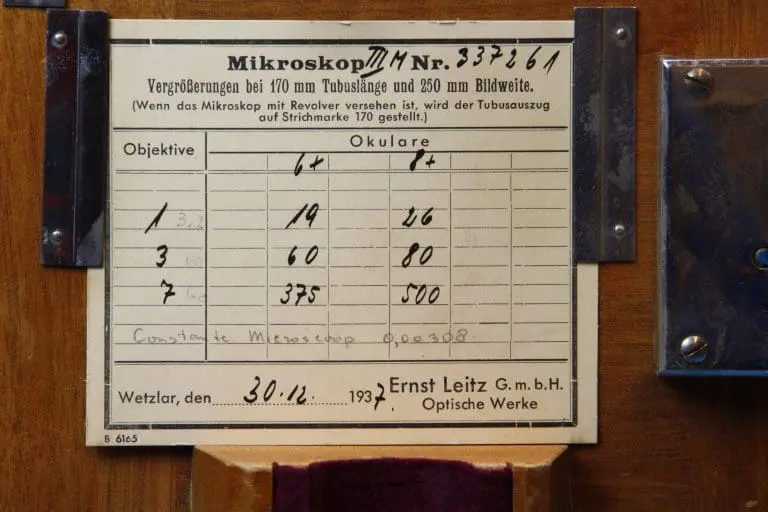 Mikroskop III M Nr. 337261
Vergrößerungen bei 170 mm Tubuslänge und 250 mm Bildweite.
(Wenn das Mikroskop mit Revolver versehen ist, wird der Tubusauszug
auf Strichmarke 170 gestellt.)
Objektive Okulare
6x 8x
1 3,2 19 26
3 10 60 80
7 375 500
Constante Microscoop 0,00308
Wetzlar, den 30.12. 1937. Ernst Leitz G.m.b.H.
Optische Werke
B 6165